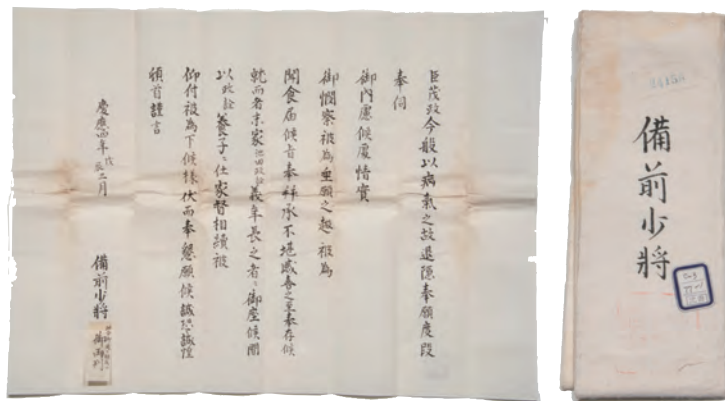 臣茂政今般以病氣之故退隠奉願度段
奉伺
御内慮候處情實
御憫察被為垂願之趣被為
聞食届候旨奉拝承不堪感喜之至奉存候
就而者末家池田政詮義年長之者ニ御座候間
以政詮養子ニ仕家督相續被
仰付被為下候様伏而奉懇願候誠恐誠惶
頓首謹言
慶應四年戊辰二月
備前少将
備前少将